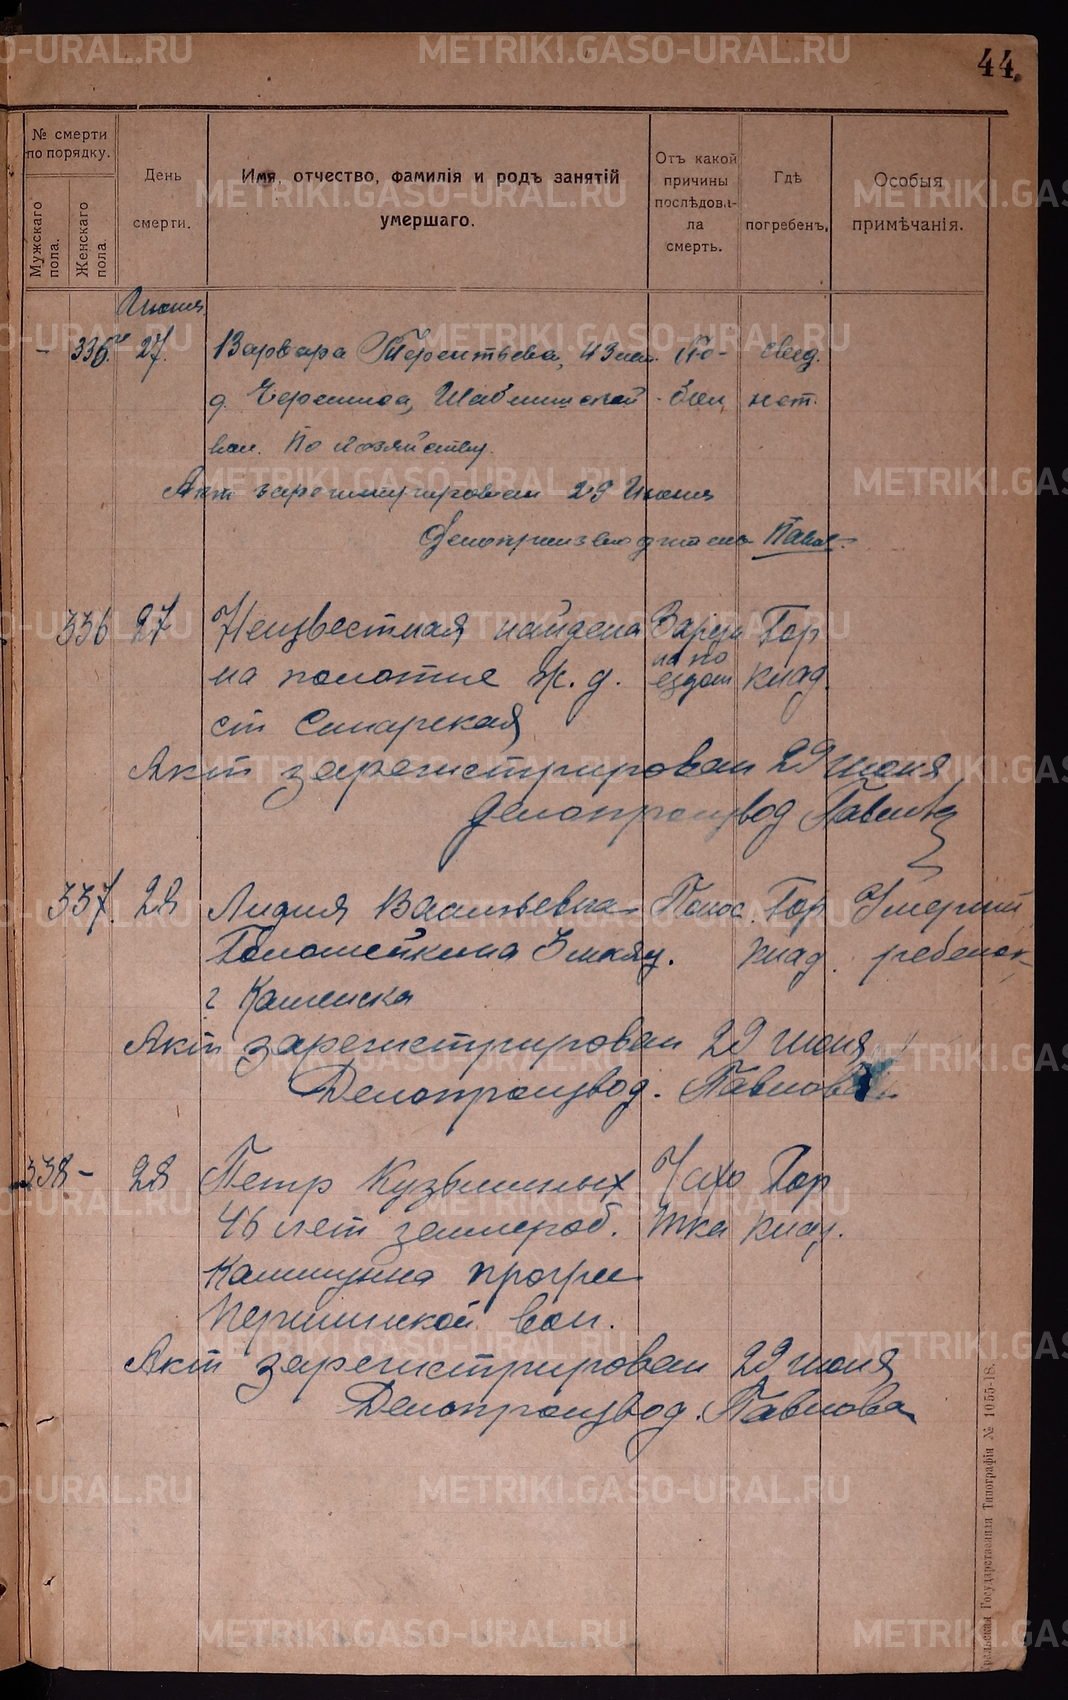 44.
№ смерти по порядку.
Мужскаго пола.
Женскаго пола.
День смерти.
Имя, отчество, фамилія и родъ занятій умершаго.
Отъ какой причины послѣдова-ла смерть.
Гдѣ погребенъ.
Особыя примѣчанія.
Июня
- 27. Варвара Терентьева, 43 лет. свед.
д. Шаблишской нет.
вол. По хозяйству.
Акт зарегистрирован 29 Июня
Делопроизводитель
336 27 Неизвестная найдена Зарезана Гор
на полотне ж. д. поездом клад.
ст Синарская
Акт зарегистрирован 29 июня
Делопроизвод Павлова
337. 28 Лидия Васильевна Понос. Гор Умерший
Голошейкина 3 месяц. клад. ребенок
г Каменска
Акт зарегистрирован 29 июня
Делопроизвод. Павлова
338 - 28 Петр Кузьминых Чахо Гор
46 лет землероб. тка клад.
Камышина
Першинской вол.
Акт зарегистрирован 29 июня
Делопроизвод. Павлова
Государственная Типографія № 1055-18.
METRIKI.GASO-URAL.RU